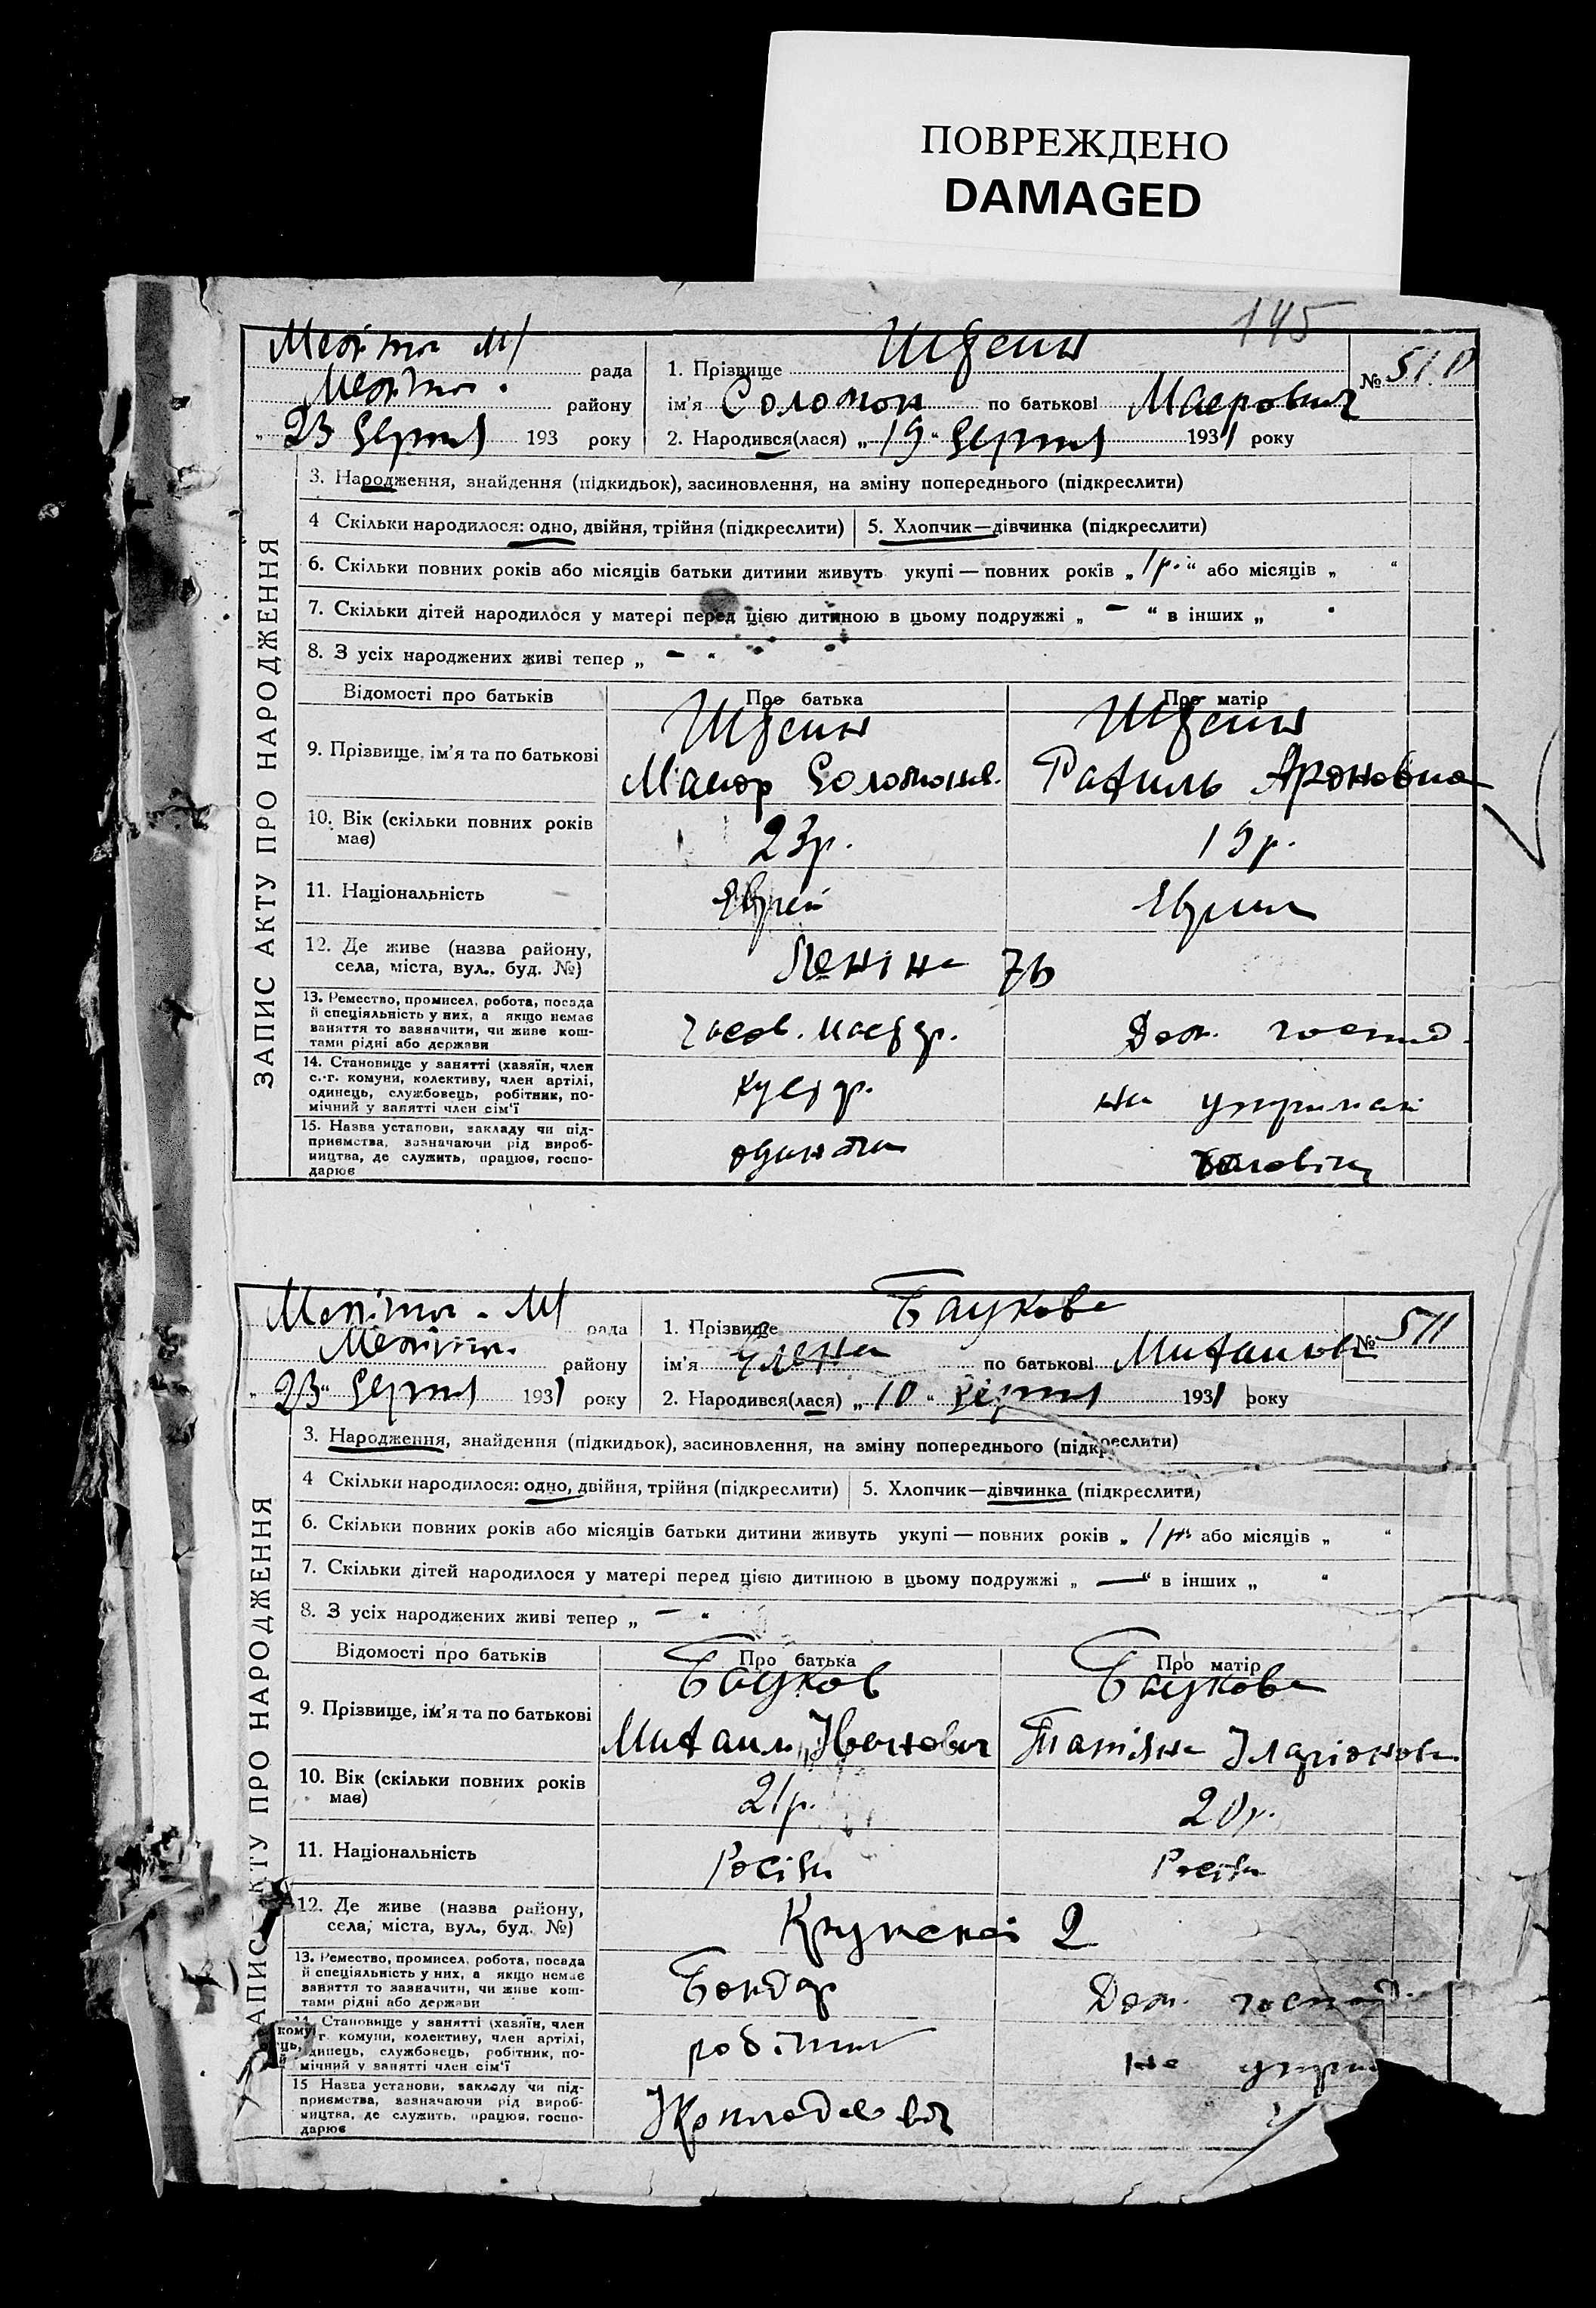 ПОВРЕЖДЕНО
DAMAGED
145
Меліт М/ рада
Меліт. району
„23 Серпня 193 року
1. Прізвище Штейн
№ 510
ім'я Соломон по батькові Маерович
2. Народився(лася) „19“ Серпня 1931 року
ЗАПИС АКТУ ПРО НАРОДЖЕННЯ
3. Народження, знайдення (підкидьок), засиновлення, на зміну попереднього (підкреслити)
4 Скільки народилося: одно, двійня, трійня (підкреслити)
5. Хлопчик—дівчинка (підкреслити)
6. Скільки повних років або місяців батьки дитини живуть укупі — повних років „1р.“ або місяців „ “
7. Скільки дітей народилося у матері перед цією дитиною в цьому подружжі „ – “ в інших „
8. З усіх народжених живі тепер „ – “
Відомості про батьків Про батька Про матір
9. Прізвище, ім'я та по батькові
Штейн Штейн
Маиор Соломонов. Рахиль Ароновна
10. Вік (скільки повних років має) 23р. 19р.
11. Національність Еврей Еврейка
12. Де живе (назва району, села, міста, вул., буд. №) Леніна 76
13. Ремество, промисел, робота, посада й спеціяльність у них, а якщо немає заняття то зазначити, чи живе коштами рідні або держави
Часов. мастер. Дом. господ.
14. Становище у занятті (хазяїн, член с.-г. комуни, колективу, член артілі, одинець, службовець, робітник, помічний у занятті член сім'ї
кустар. на утриман
15. Назва установи, закладу чи підприємства, зазначаючи рід виробництва, де служить, працює, господарює
одиночка чоловіка
Меліт. М/ рада
Меліт. району
„23“ Серпня 1931 року
1. Прізвище Баукова
№ 511
ім'я Улена по батькові Михайлов
2. Народився(лася) „10“ Серпня 1931 року
ЗАПИС АКТУ ПРО НАРОДЖЕННЯ
3. Народження, знайдення (підкидьок), засиновлення, на зміну попереднього (підкреслити)
4 Скільки народилося: одно, двійня, трійня (підкреслити)
5. Хлопчик—дівчинка (підкреслити)
6. Скільки повних років або місяців батьки дитини живуть укупі — повних років „1р“ або місяців „ “
7. Скільки дітей народилося у матері перед цією дитиною в цьому подружжі „ — “ в інших „ “
8. З усіх народжених живі тепер „ – “
Відомості про батьків Про батька Про матір
9. Прізвище, ім'я та по батькові
Бауков Баукова
Михаил Іванович Татіяна Іларіонова
10. Вік (скільки повних років має) 21р. 20р.
11. Національність Росіян Росіян
12. Де живе (назва району, села, міста, вул., буд. №) Крупської 2
13. Ремество, промисел, робота, посада й спеціяльність у них, а якщо немає заняття то зазначити, чи живе коштами рідні або держави
Бондар Дом. господ.
14. Становище у занятті (хазяїн, член с.-г. комуни, колективу, член артілі, одинець, службовець, робітник, помічний у занятті член сім'ї
робітник на утрим
15 Назва установи, закладу чи підприємства, зазначаючи рід виробництва, де служить, працює, господарює